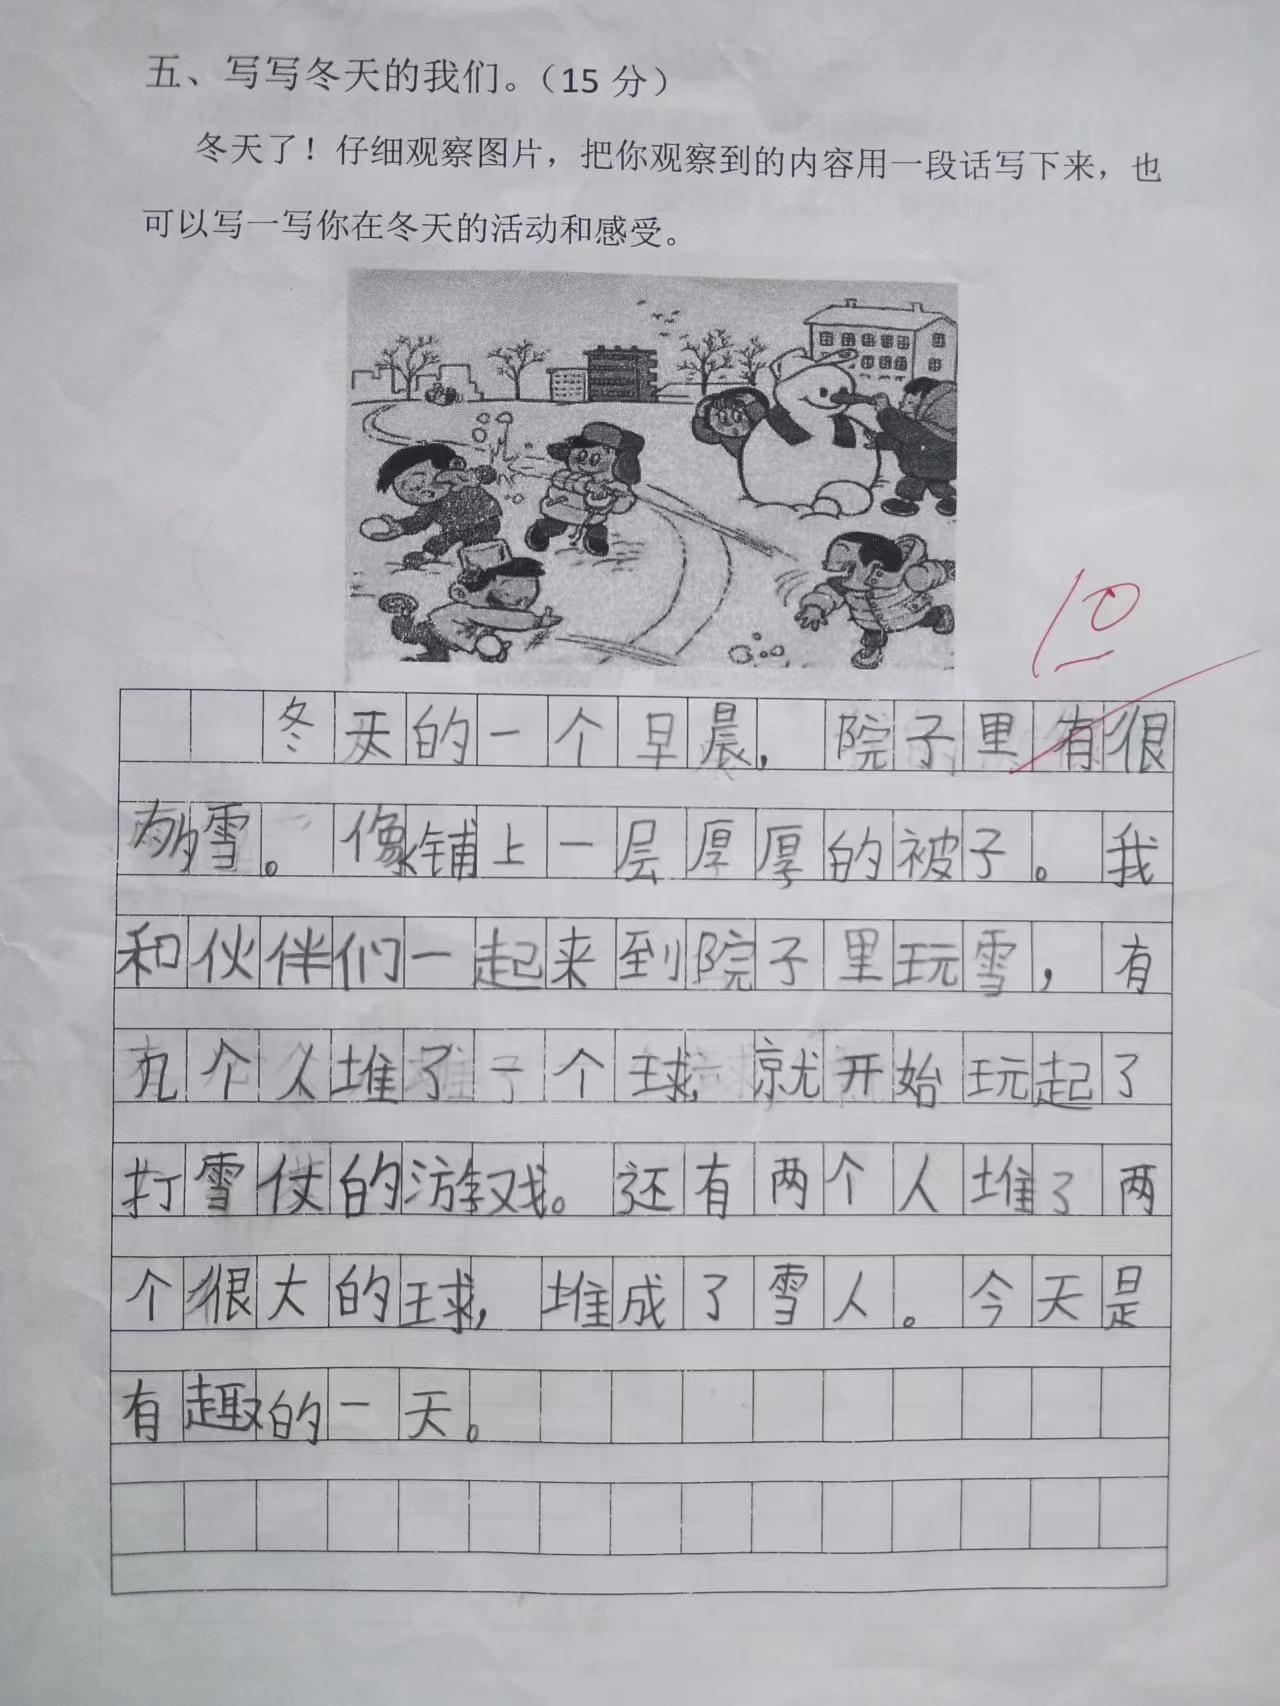 五、写写冬天的我们。（15 分）
冬天了！仔细观察图片，把你观察到的内容用一段话写下来，也
可以写一写你在冬天的活动和感受。
10
冬天的一个早晨，院子里有很
多雪。像铺上一层厚厚的被子。我
和伙伴们一起来到院子里玩雪，有
九个人堆了一个球，就开始玩起了
打雪仗的游戏。还有两个人堆了两
个很大的球，堆成了雪人。今天是
有趣的一天。